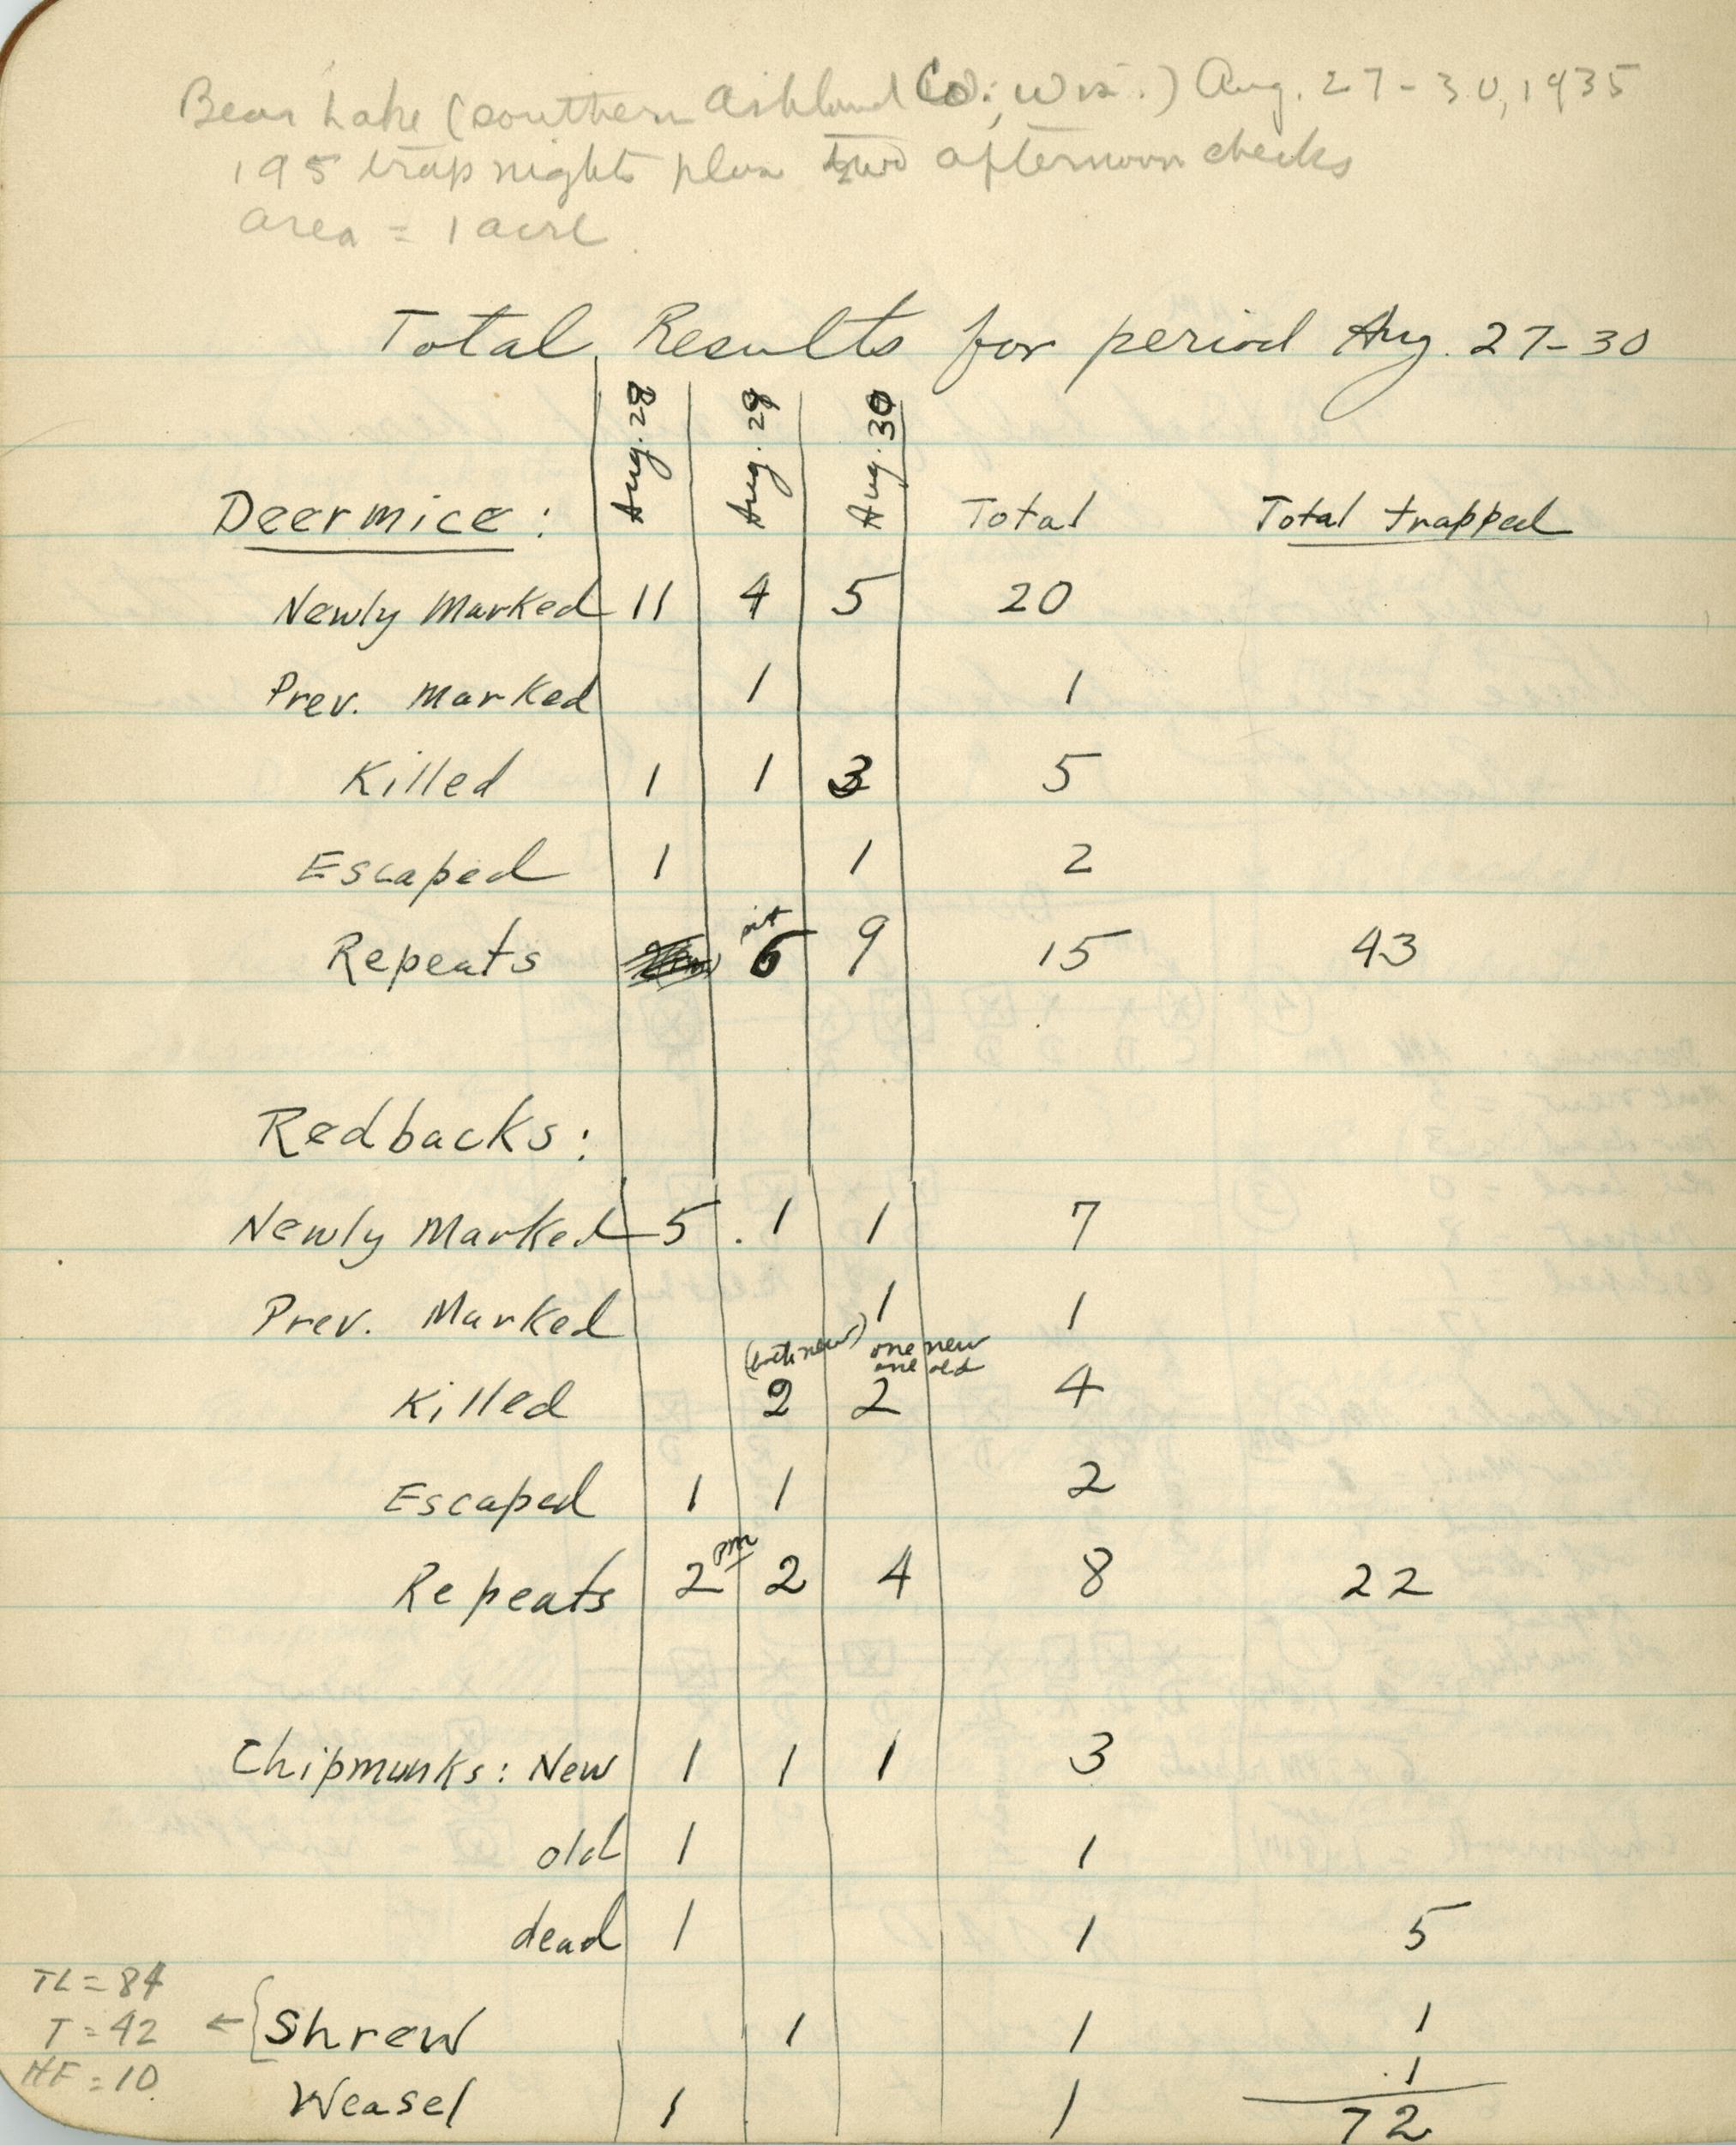 Bear Lake (southern Ashland Co., Wis.) Aug. 27-30, 1935
195 trap nights plus two afternoon checks
area = 1 acre
Total Results for period Aug. 27-30
Aug. 28 Aug. 29 Aug. 30
Deermice: Total Total trapped
Newly Marked 11 4 5 20
Prev. Marked 1 1
Killed 1 1 3 5
Escaped 1 1 2
Repeats 6 9 15 43
Redbacks:
Newly Marked 5 1 1 7
Prev. Marked 1 1
(both new) one new
one old
Killed 2 2 4
Escaped 1 1 2
Repeats 2 pm 2 4 8 22
Chipmunks: New 1 1 1 3
old 1 1
dead 1 1 5
TL = 84
T = 42 ← { Shrew 1 1 1
HF = 10 1
Weasel 1 1 72